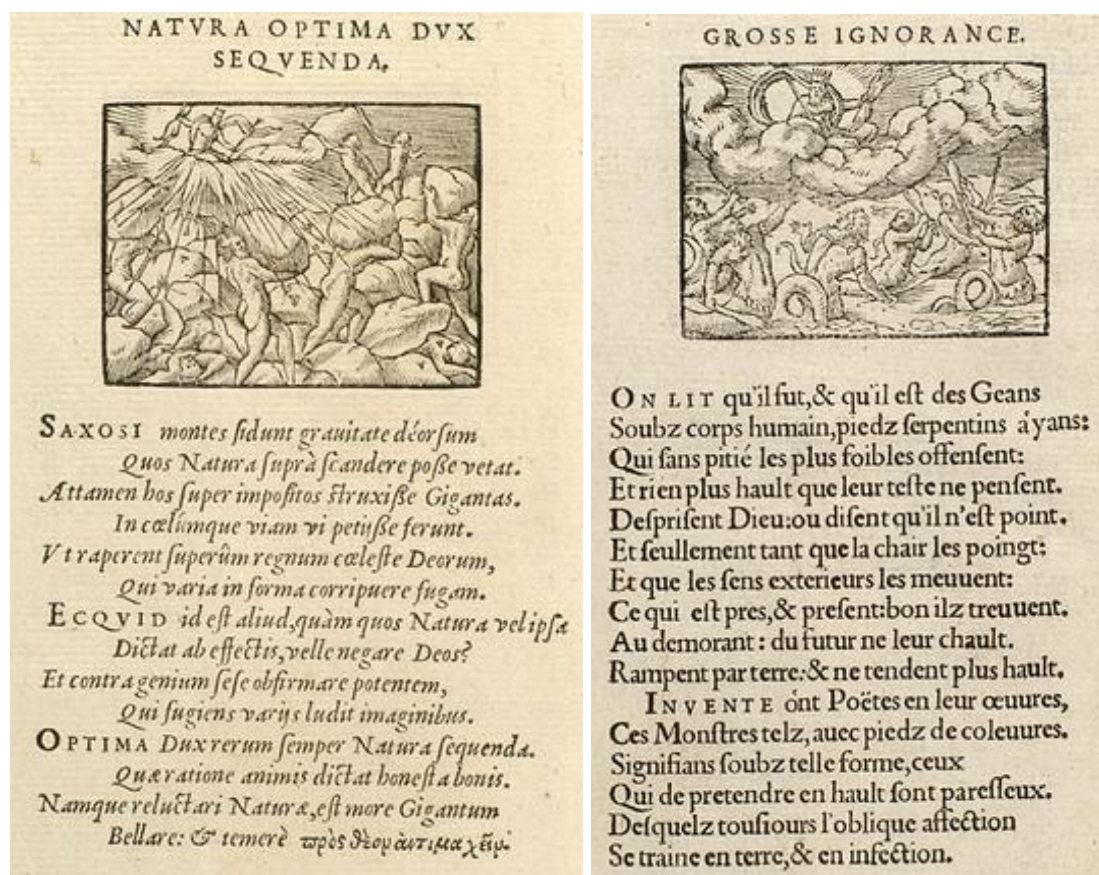 NATVRA OPTIMA DVX
SEQVENDA.
SAXOSI montes sidunt grauitate déorsum
Quos Natura suprà scandere posse vetat.
Attamen hos super impositos struxisse Gigantas.
In cœlúmque viam vi petijsse ferunt.
Vt raperent superûm regnum cœleste Deorum,
Qui varia in forma corripuere fugam.
ECQVID id est aliud, quàm quos Natura vel ipsa
Dictat ab effectis, velle negare Deos?
Et contra genium sese obfirmare potentem,
Qui fugiens varijs ludit imaginibus.
OPTIMA Dux rerum semper Natura sequenda.
Quæ ratione animis dictat honesta bonis.
Namque reluctari Naturæ, est more Gigantum
Bellare: & temerè πρὸς θεὸμ ἀντιμαχεῖμ.
GROSSE IGNORANCE.
ON LIT qu'il fut, & qu'il est des Geans
Soubz corps humain, piedz serpentins áyans:
Qui sans pitié les plus foibles offensent:
Et rien plus hault que leur teste ne pensent.
Desprisent Dieu: ou disent qu'il n'est point.
Et seullement tant que la chair les poingt:
Et que les sens exterieurs les meuuent:
Ce qui est pres, & present: bon ilz treuuent.
Au demorant: du futur ne leur chault.
Rampent par terre: & ne tendent plus hault.
INVENTE ónt Poëtes en leur œuures,
Ces Monstres telz, auec piedz de coleuures.
Signifians soubz telle forme, ceux
Qui de pretendre en hault sont paresseux.
Desquelz tousiours l'oblique affection
Se traine en terre, & en infection.